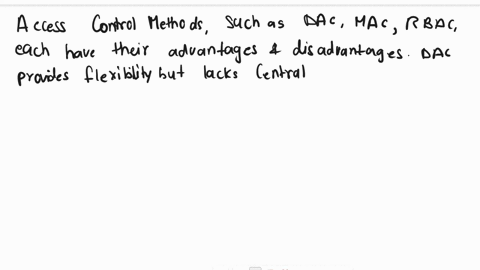 Access Control Methods, such as DAC, MAC, RBAC,
each have their advantages & disadvantages. DAC
provides flexibility but lacks Central